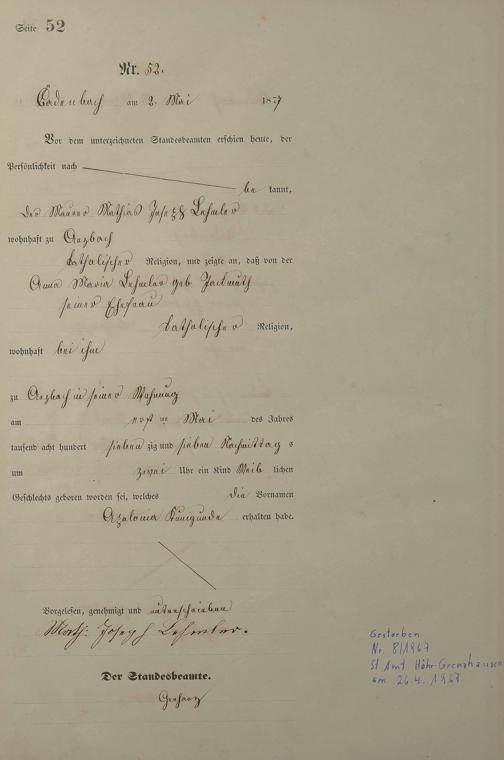 Seite 52
Nr. 52.
Cadenbach am 2. Mai 1877
Vor dem unterzeichneten Standesbeamten erschien heute, der
Persönlichkeit nach
be kannt,
der Maurer Mathias Joseph Lehmler
wohnhaft zu Arzbach
katholischer Religion, und zeigte an, daß von der
Anna Maria Lehmler geb. Jackmuth
seiner Ehefrau
katholischer Religion,
wohnhaft bei ihm
zu Arzbach in seiner Wohnung
am ersten Mai des Jahres
tausend acht hundert sieben zig und sieben Nachmittag s
um zwei Uhr ein Kind Weib lichen
Geschlechts geboren worden sei, welches die Vornamen
Apolonia Kunigunde erhalten habe.
Vorgelesen, genehmigt und unterschrieben
Math: Joseph Lehmler.
Der Standesbeamte.
Gestorben
Nr. 8/1967
St. Amt Höhr-Grenzhausen
am 26.4.1967